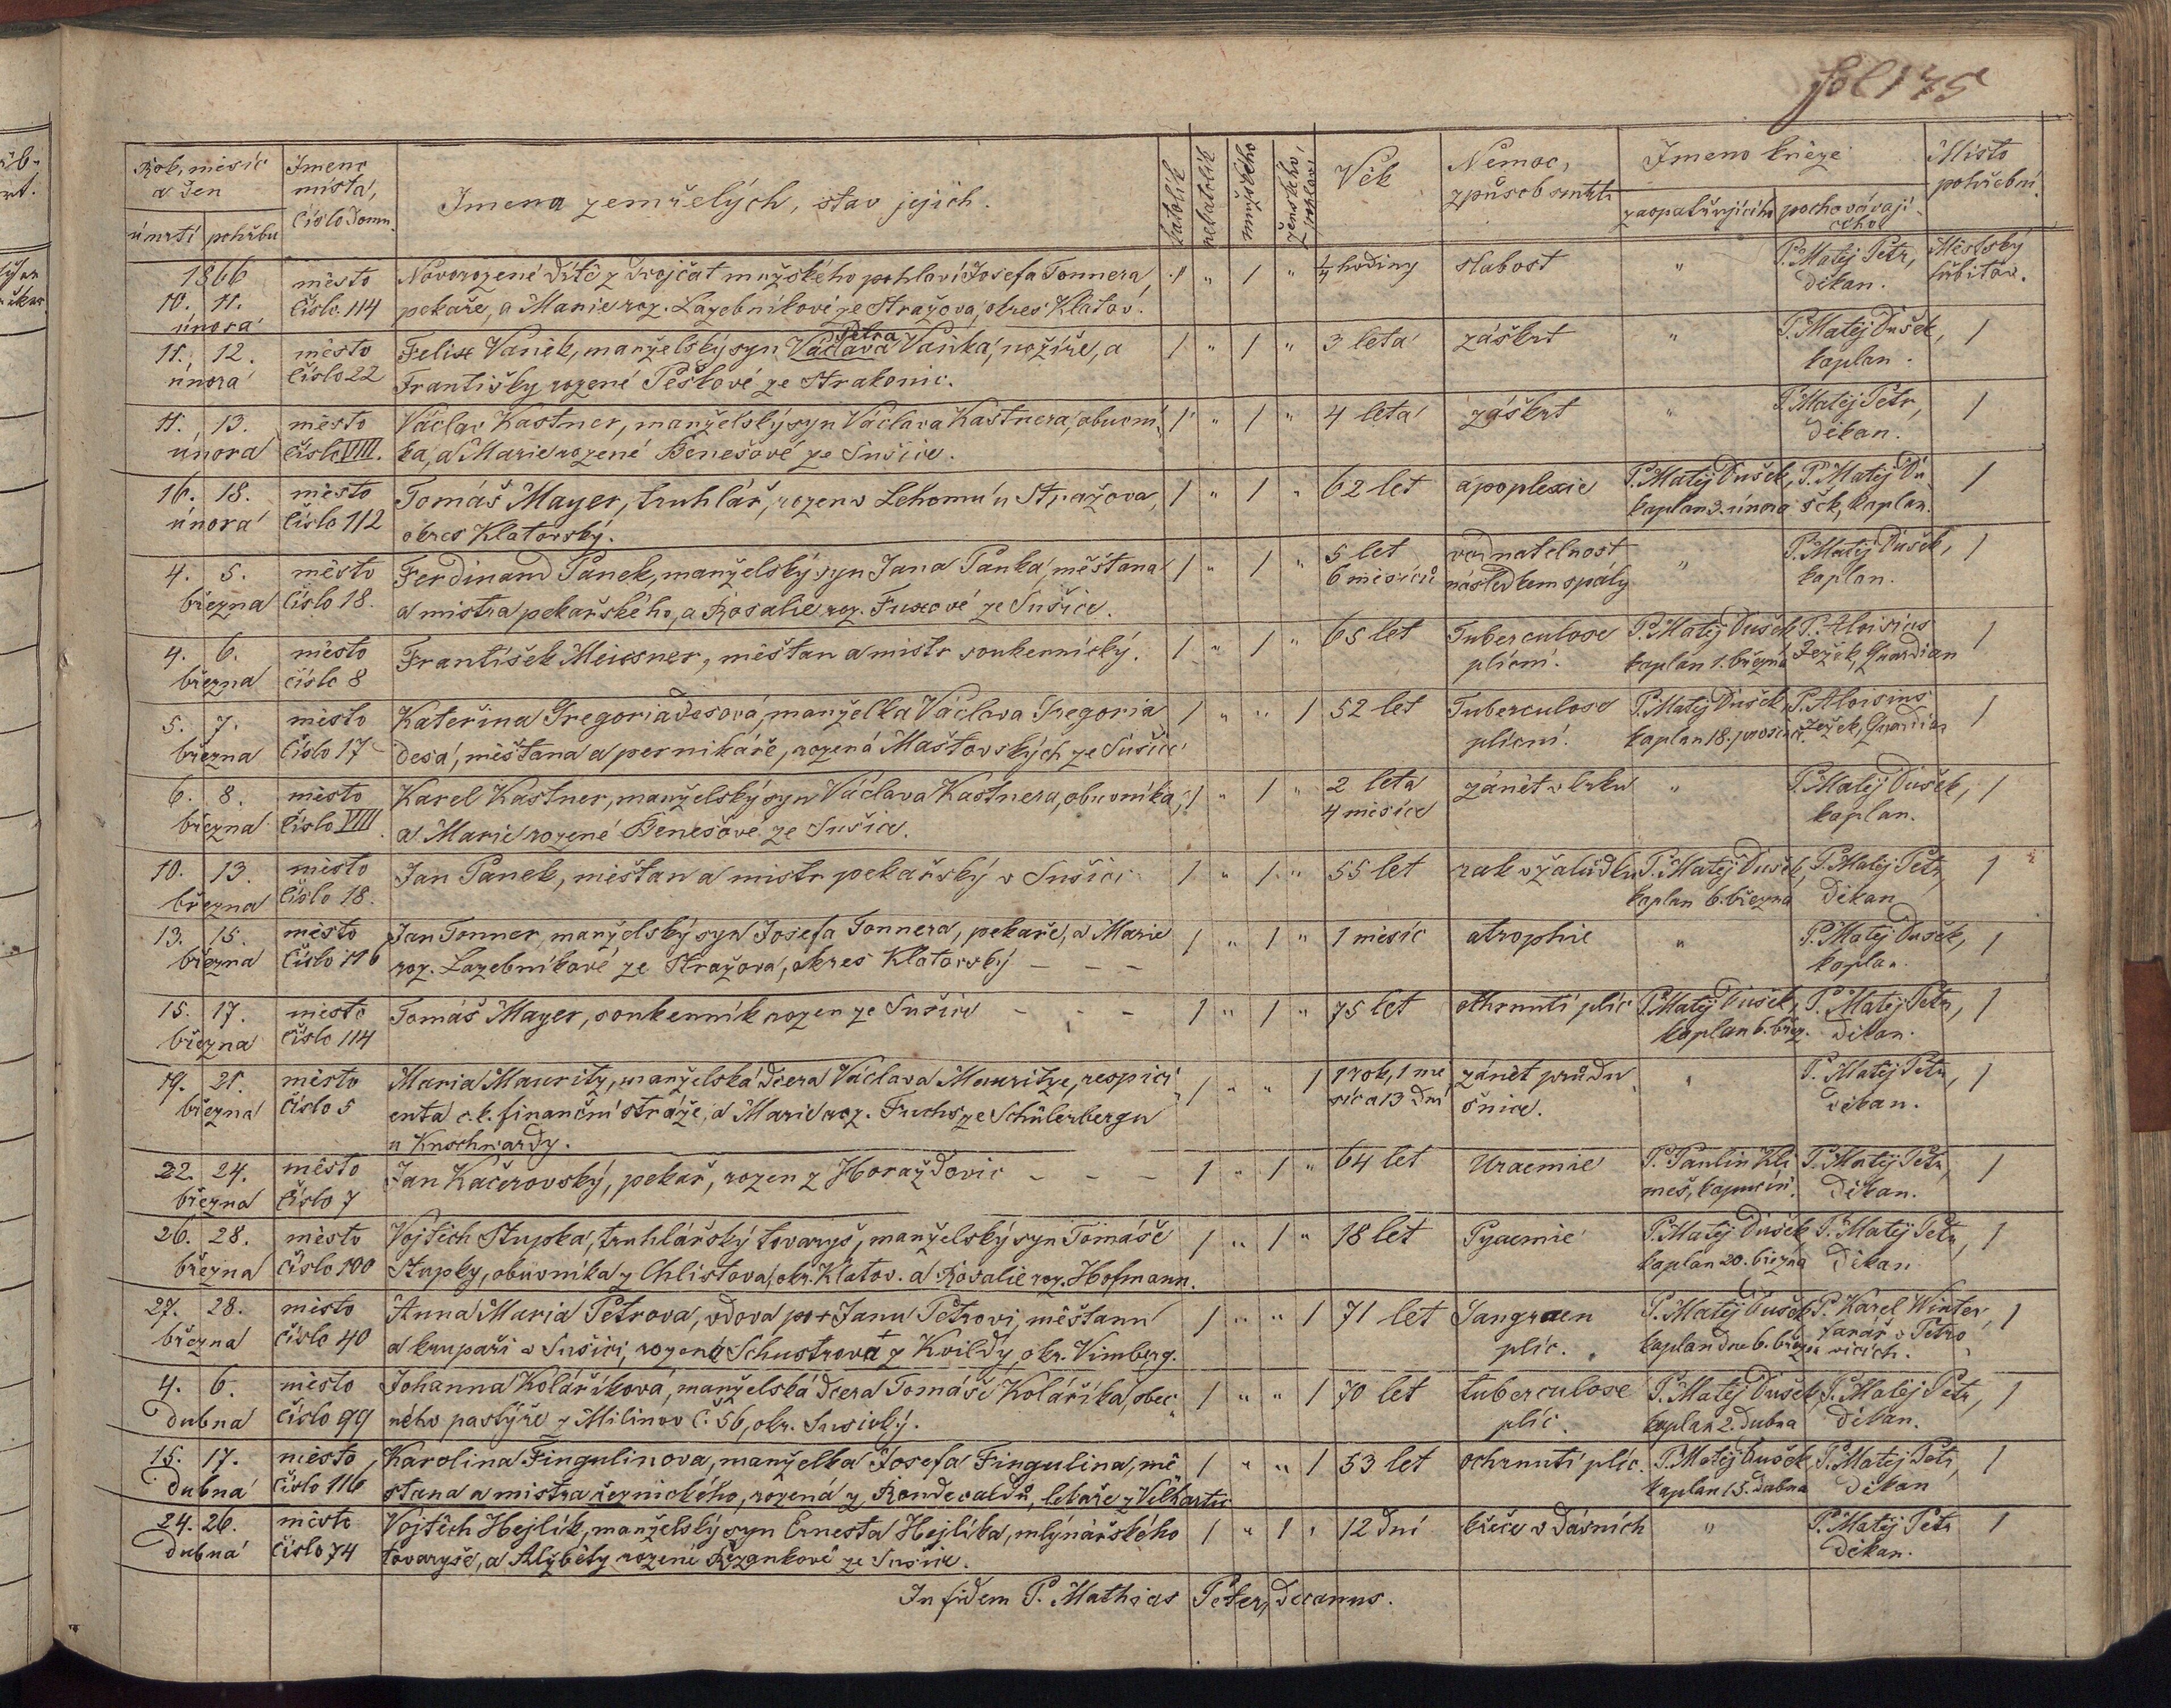 fol 175
Rok, měsíc a den
úmrtí pohřbu
Jmeno místa, číslo domu.
Jmena zemřelých, stav jejich.
katolík
nekatolík
mužského
ženského pohlaví
Věk
Nemoc, způsob smrti
Jmeno kněze
zaopatřujícího pochovávajícího
Místo pohřební
1866
10. 11. února město číslo 114 Novorozené dítě z dvojčat mužského pohlaví Josefa Tonnera, 1 " 1 " 1/4 hodiny slabost " P. Matěj Petr, děkan. Městský hřbitov.
pekaře, a Marie roz. Lazebníkové ze Stražova, okres Klatov.
11. 12. února město číslo 22 Felix Vaněk, manželský syn Václava Petra Vaňka, nožíře, a 1 " 1 " 3 leta záškrt " P. Matěj Dušek, kaplan. 1
Františky rozené Peškové ze Strakonic.
11. 13. února město číslo VIII. Václav Kastner, manželský syn Václava Kastnera, obuvní 1 " 1 " 4 leta záškrt " P. Matěj Petr, děkan. 1
ka, a Marie rozené Benešové ze Sušice.
16. 18. února město číslo 112 Tomáš Mayer, truhlář, rozen v Lehomu u Stražova, 1 " 1 " 62 let apoplexie P. Matěj Dušek, kaplan 3. února P. Matěj Dušek, kaplan. 1
okres Klatovský.
4. 5. března město číslo 18. Ferdinand Panek, manželský syn Jana Panka, měštana 1 " 1 " 5 let 6 měsíců vodnatelnost následkem spály " P. Matěj Dušek, kaplan. 1
a mistra pekařského, a Rosalie roz. Fuxové ze Sušice.
4. 6. března město číslo 8 František Meissner, měštan a mistr soukennický. 1 " 1 " 65 let Tuberculose plícní. P. Matěj Dušek kaplan 1. března P. Aloisius Ježek, Quardian 1
5. 7. března město číslo 17 Kateřina Gregoriadesová, manželka Václava Gregoria 1 " " 1 52 let Tuberculose plícní. P. Matěj Dušek kaplan 18. prosince P. Aloisius Ježek, Quardian 1
desa, měštana a pernikáře, rozená Maštovských ze Sušice
6. 8. března město číslo VIII. Karel Kastner, manželský syn Václava Kastnera, obuvníka, 1 " 1 " 2 leta 4 měsíce zánět v krku " P. Matěj Dušek, kaplan. 1
a Marie rozené Benešové ze Sušice.
10. 13. března město číslo 18. Jan Panek, měštan a mistr pekařský v Sušici 1 " 1 " 55 let rak v žaludku P. Matěj Dušek, kaplan 6. března P. Matěj Petr, děkan 1
13. 15. března město číslo 116 Jan Tonner, manželský syn Josefa Tonnera, pekaře, a Marie 1 " 1 " 1 měsíc atrophie " P. Matěj Dušek, kaplan. 1
roz. Lazebníkové ze Stražova, okres Klatovský - - -
15. 17. března město číslo 114 Tomáš Mayer, soukenník rozen ze Sušice - - - 1 " 1 " 75 let ochrnutí plic P. Matěj Dušek, kaplan 6. břez. P. Matěj Petr, děkan. 1
19. 21. března město číslo 5 Maria Mauritz, manželská dcera Václava Mauritze, respici 1 " " 1 1 rok, 1 měsíc a 13 dní zánět průdušnice. " P. Matěj Petr, děkan. 1
enta c. k. finanční stráže, a Marie roz. Fuchs ze Schülerbergu
u Kuschwardy.
22. 24. března město číslo 7 Jan Kačerovský, pekař, rozen z Horažďovic - - - 1 " 1 " 64 let Uraemie P. Paulin Klimeš, kapucín. P. Matěj Petr, děkan. 1
26. 28. března město číslo 100 Vojtěch Stupka, truhlářský tovaryš, manželský syn Tomáše 1 " 1 " 18 let Pyaemie P. Matěj Dušek kaplan 20. března P. Matěj Petr, děkan 1
Stupky, obuvníka z Chlistova, okr. Klatov. a Rosalie roz. Hofmann.
27. 28. března město číslo 40 Anna Maria Petrova, vdova po + Janu Petrovi, měštanu 1 " " 1 71 let Gangraen plic. P. Matěj Dušek kaplan dne 6. březn P. Karel Winter, farář v Petrovicích. 1
a krupaři v Sušici, rozená Schustrová z Kvildy, okr. Vimberg.
4. 6. dubna město číslo 99 Johanna Koláříková, manželská dcera Tomáše Koláříka, obec 1 " " 1 70 let tuberculose plic. P. Matěj Dušek kaplan 2. dubna P. Matěj Petr, děkan. 1
ného pastýře z Milínov č. 56, okr. Sušický.
15. 17. dubna město číslo 116 Karolina Fingulinova, manželka Josefa Fingulina, mě 1 " " 1 53 let ochrnutí plic. P. Matěj Dušek kaplan 15. dubna P. Matěj Petr, děkan 1
štana a mistra řeznického, rozená z lékaře z Velhartic
24. 26. dubna město číslo 74 Vojtěch Hejlík, manželský syn Ernesta Hejlíka, mlýnářského 1 " 1 " 12 dní křeče v dásních " P. Matěj Petr děkan. 1
tovaryše, a Alžběty rozené Řezankové ze Sušice.
In fidem P. Mathias Peter, Decanus.